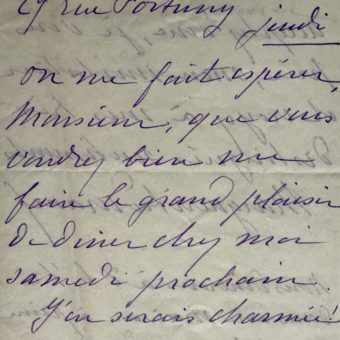 29 rue Fortuny jeudi
On me fait espérer,
Monsieur, que vous
voudrez bien me
faire le grand plaisir
de diner chez moi
samedi prochain.
J'en serais charmée!